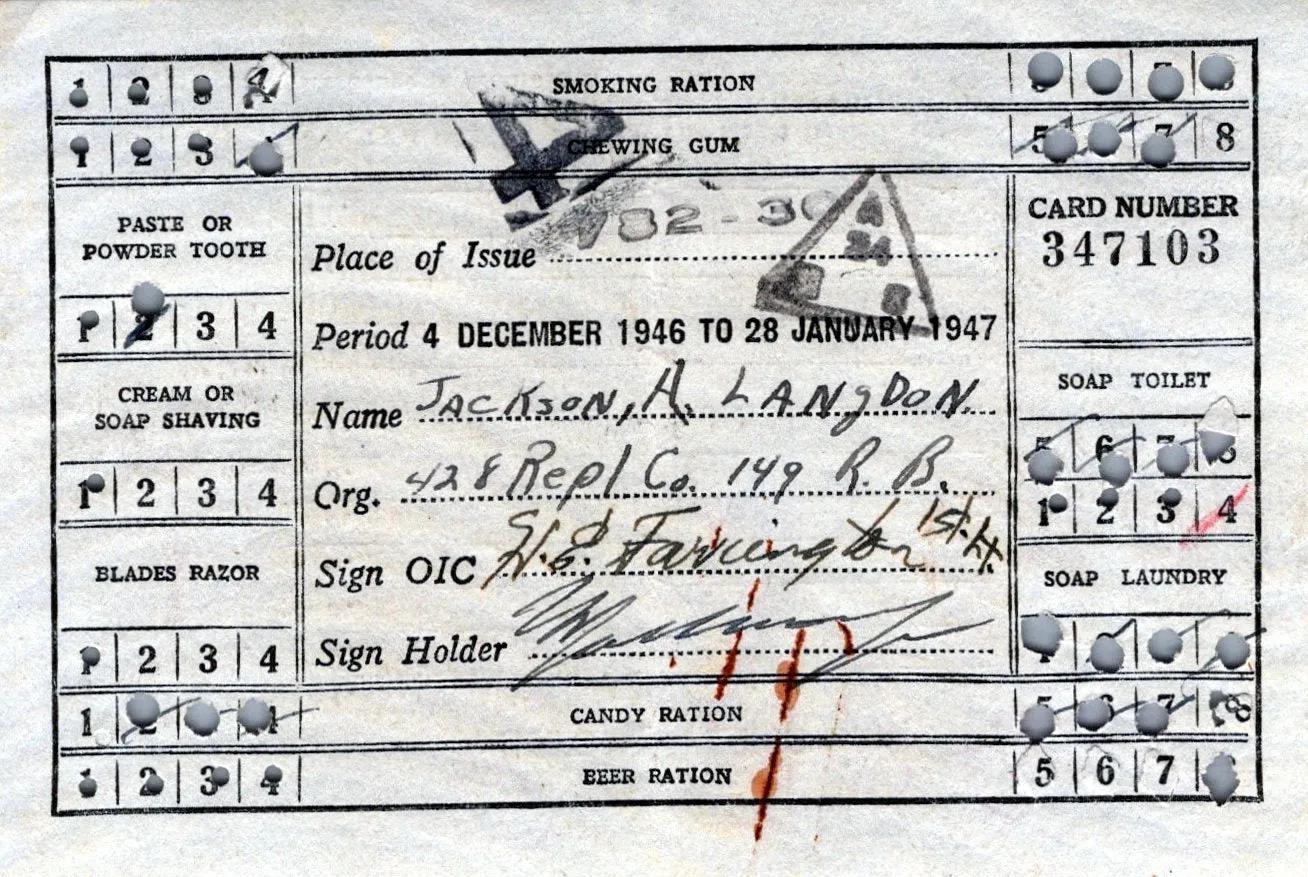 1 2 3 4 SMOKING RATION 7
1 2 3 4 CHEWING GUM 5 7 8
4
PASTE OR
POWDER TOOTH
1 2 3 4
CREAM OR
SOAP SHAVING
1 2 3 4
BLADES RAZOR
1 2 3 4
182-30
A
34
Place of Issue
Period 4 DECEMBER 1946 TO 28 JANUARY 1947
Name JACKSON, H. LANGDON
Org. 428 Repl Co. 149 R. B.
Sign OIC H.E. Farrington 1st Lt
Sign Holder
CARD NUMBER
347103
SOAP TOILET
5 6 7 8
1 2 3 4
SOAP LAUNDRY
1 CANDY RATION 5 6 7 8
1 2 3 4 BEER RATION 5 6 7